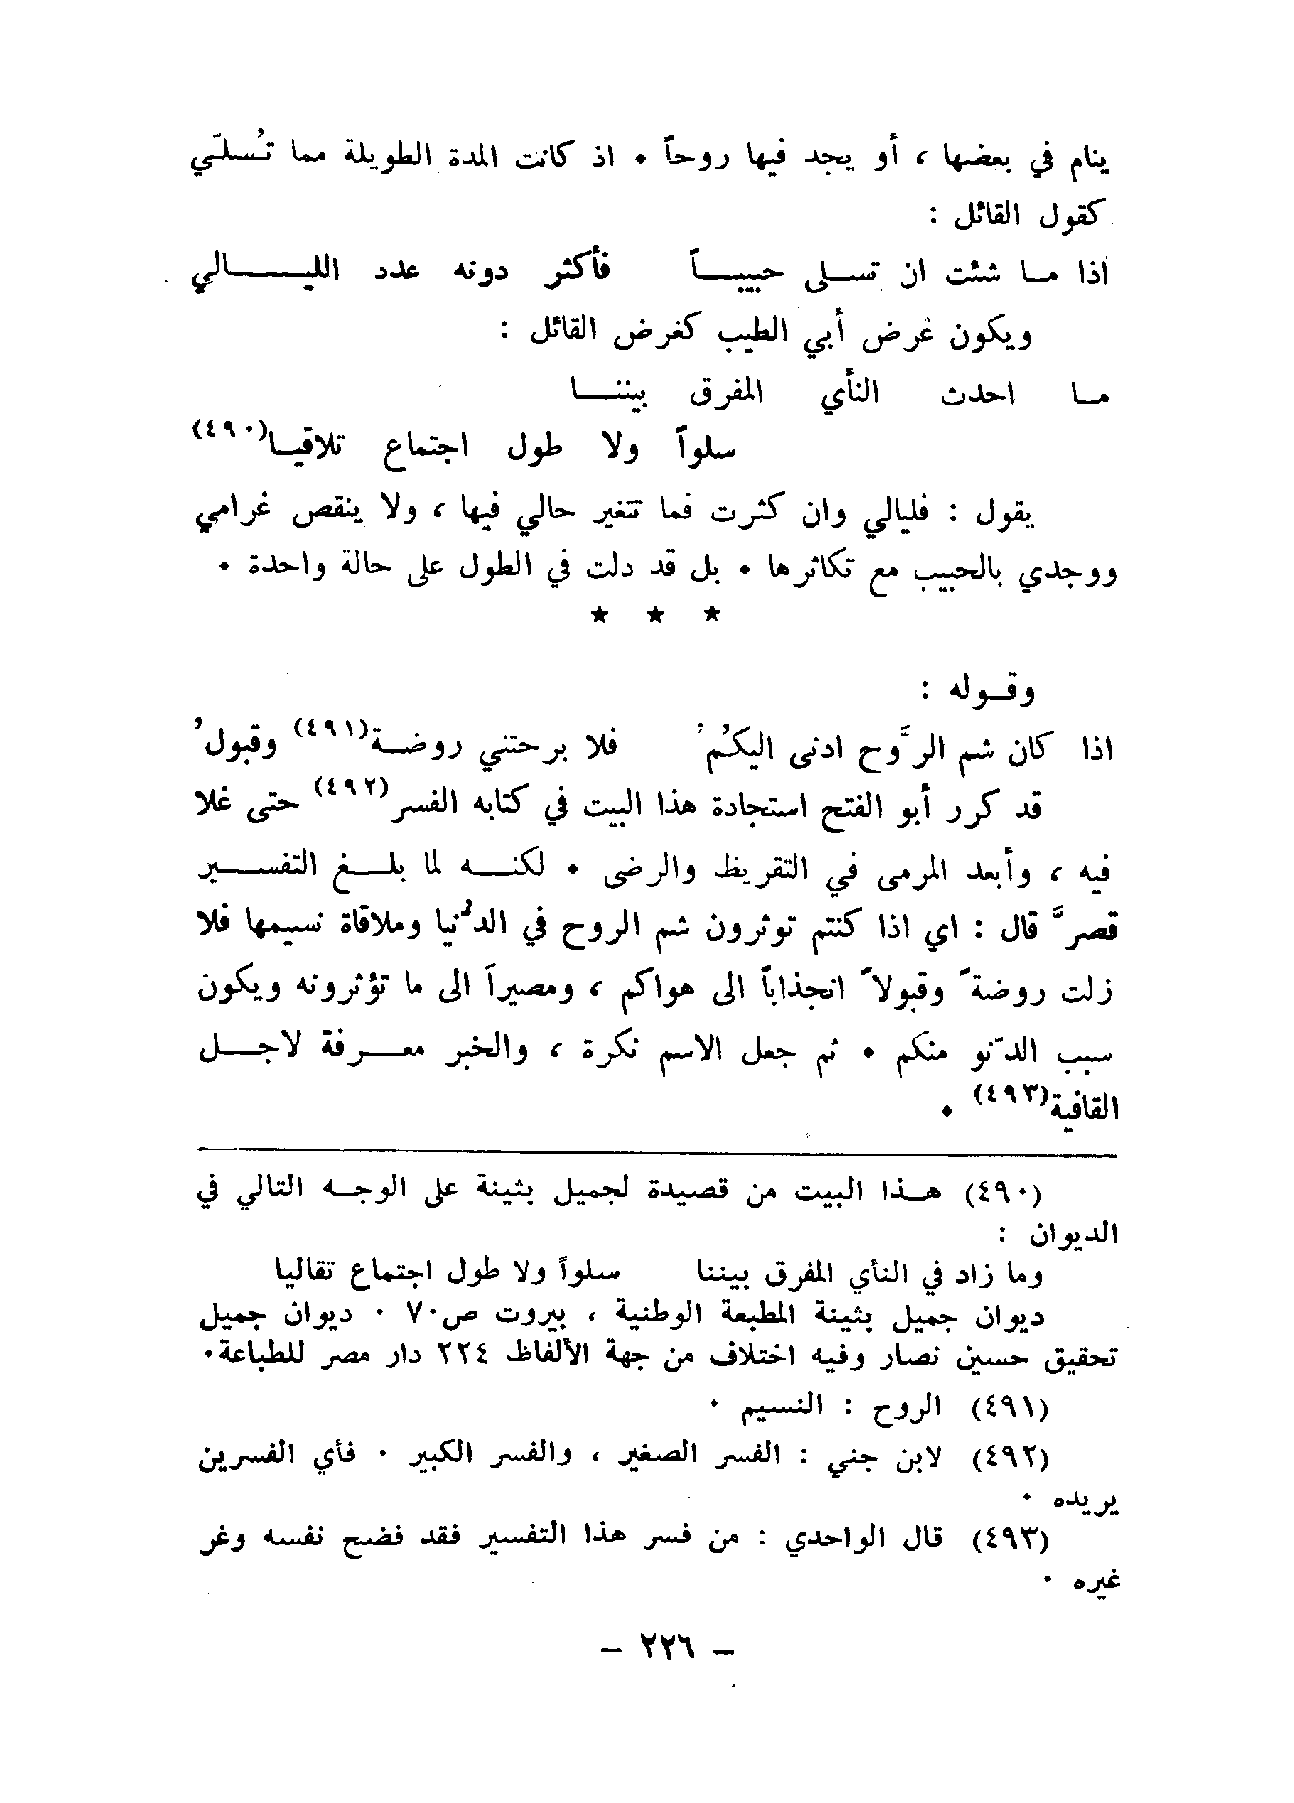 ينام في بعضها ، أو يجد فيها روحاً ٠ اذ كانت المدة الطويلة مما تُسلّي
كقول القائل :
اذا ما شئت ان تسلى حبيباً فأكثر دونه عدد الليالي
ويكون غرض أبي الطيب كغرض القائل :
ما احدث النأي المفرق بيننا
سلواً ولا طول اجتماع تلاقيا(٤٩٠)
يقول : فليالي وان كثرت فما تتغير حالي فيها ، ولا ينقص غرامي
ووجدي بالحبيب مع تكاثرها ٠ بل قد دلت في الطول على حالة واحدة ٠
★ ★ ★
وقوله :
اذا كان شم الرَّوح ادنى اليكُمُ فلا برحتني روضة(٤٩١) وقبولُ
قد كرر أبو الفتح استجادة هذا البيت في كتابه الفسر(٤٩٢) حتى غلا
فيه ، وأبعد المرمى في التقريظ والرضى ٠ لكنه لما بلغ التفسير
قصرَّ قال : اي اذا كنتم توثرون شم الروح في الدُّنيا وملاقاة نسيمها فلا
زلت روضةً وقبولاً انجذاباً الى هواكم ، ومصيراً الى ما تؤثرونه ويكون
سبب الدنو منكم ٠ ثم جعل الاسم نكرة ، والخبر معرفة لاجل
القافية(٤٩٣) ٠
(٤٩٠) هذا البيت من قصيدة لجميل بثينة على الوجه التالي في
الديوان :
وما زاد في النأي المفرق بيننا سلواً ولا طول اجتماع تقاليا
ديوان جميل بثينة المطبعة الوطنية ، بيروت ص٧٠ ٠ ديوان جميل
تحقيق حسين نصار وفيه اختلاف من جهة الألفاظ ٢٢٤ دار مصر للطباعة٠
(٤٩١) الروح : النسيم ٠
(٤٩٢) لابن جني : الفسر الصغير ، والفسر الكبير ٠ فأي الفسرين
يريده ٠
(٤٩٣) قال الواحدي : من فسر هذا التفسير فقد فضح نفسه وغر
غيره ٠
– ٢٢٦ –